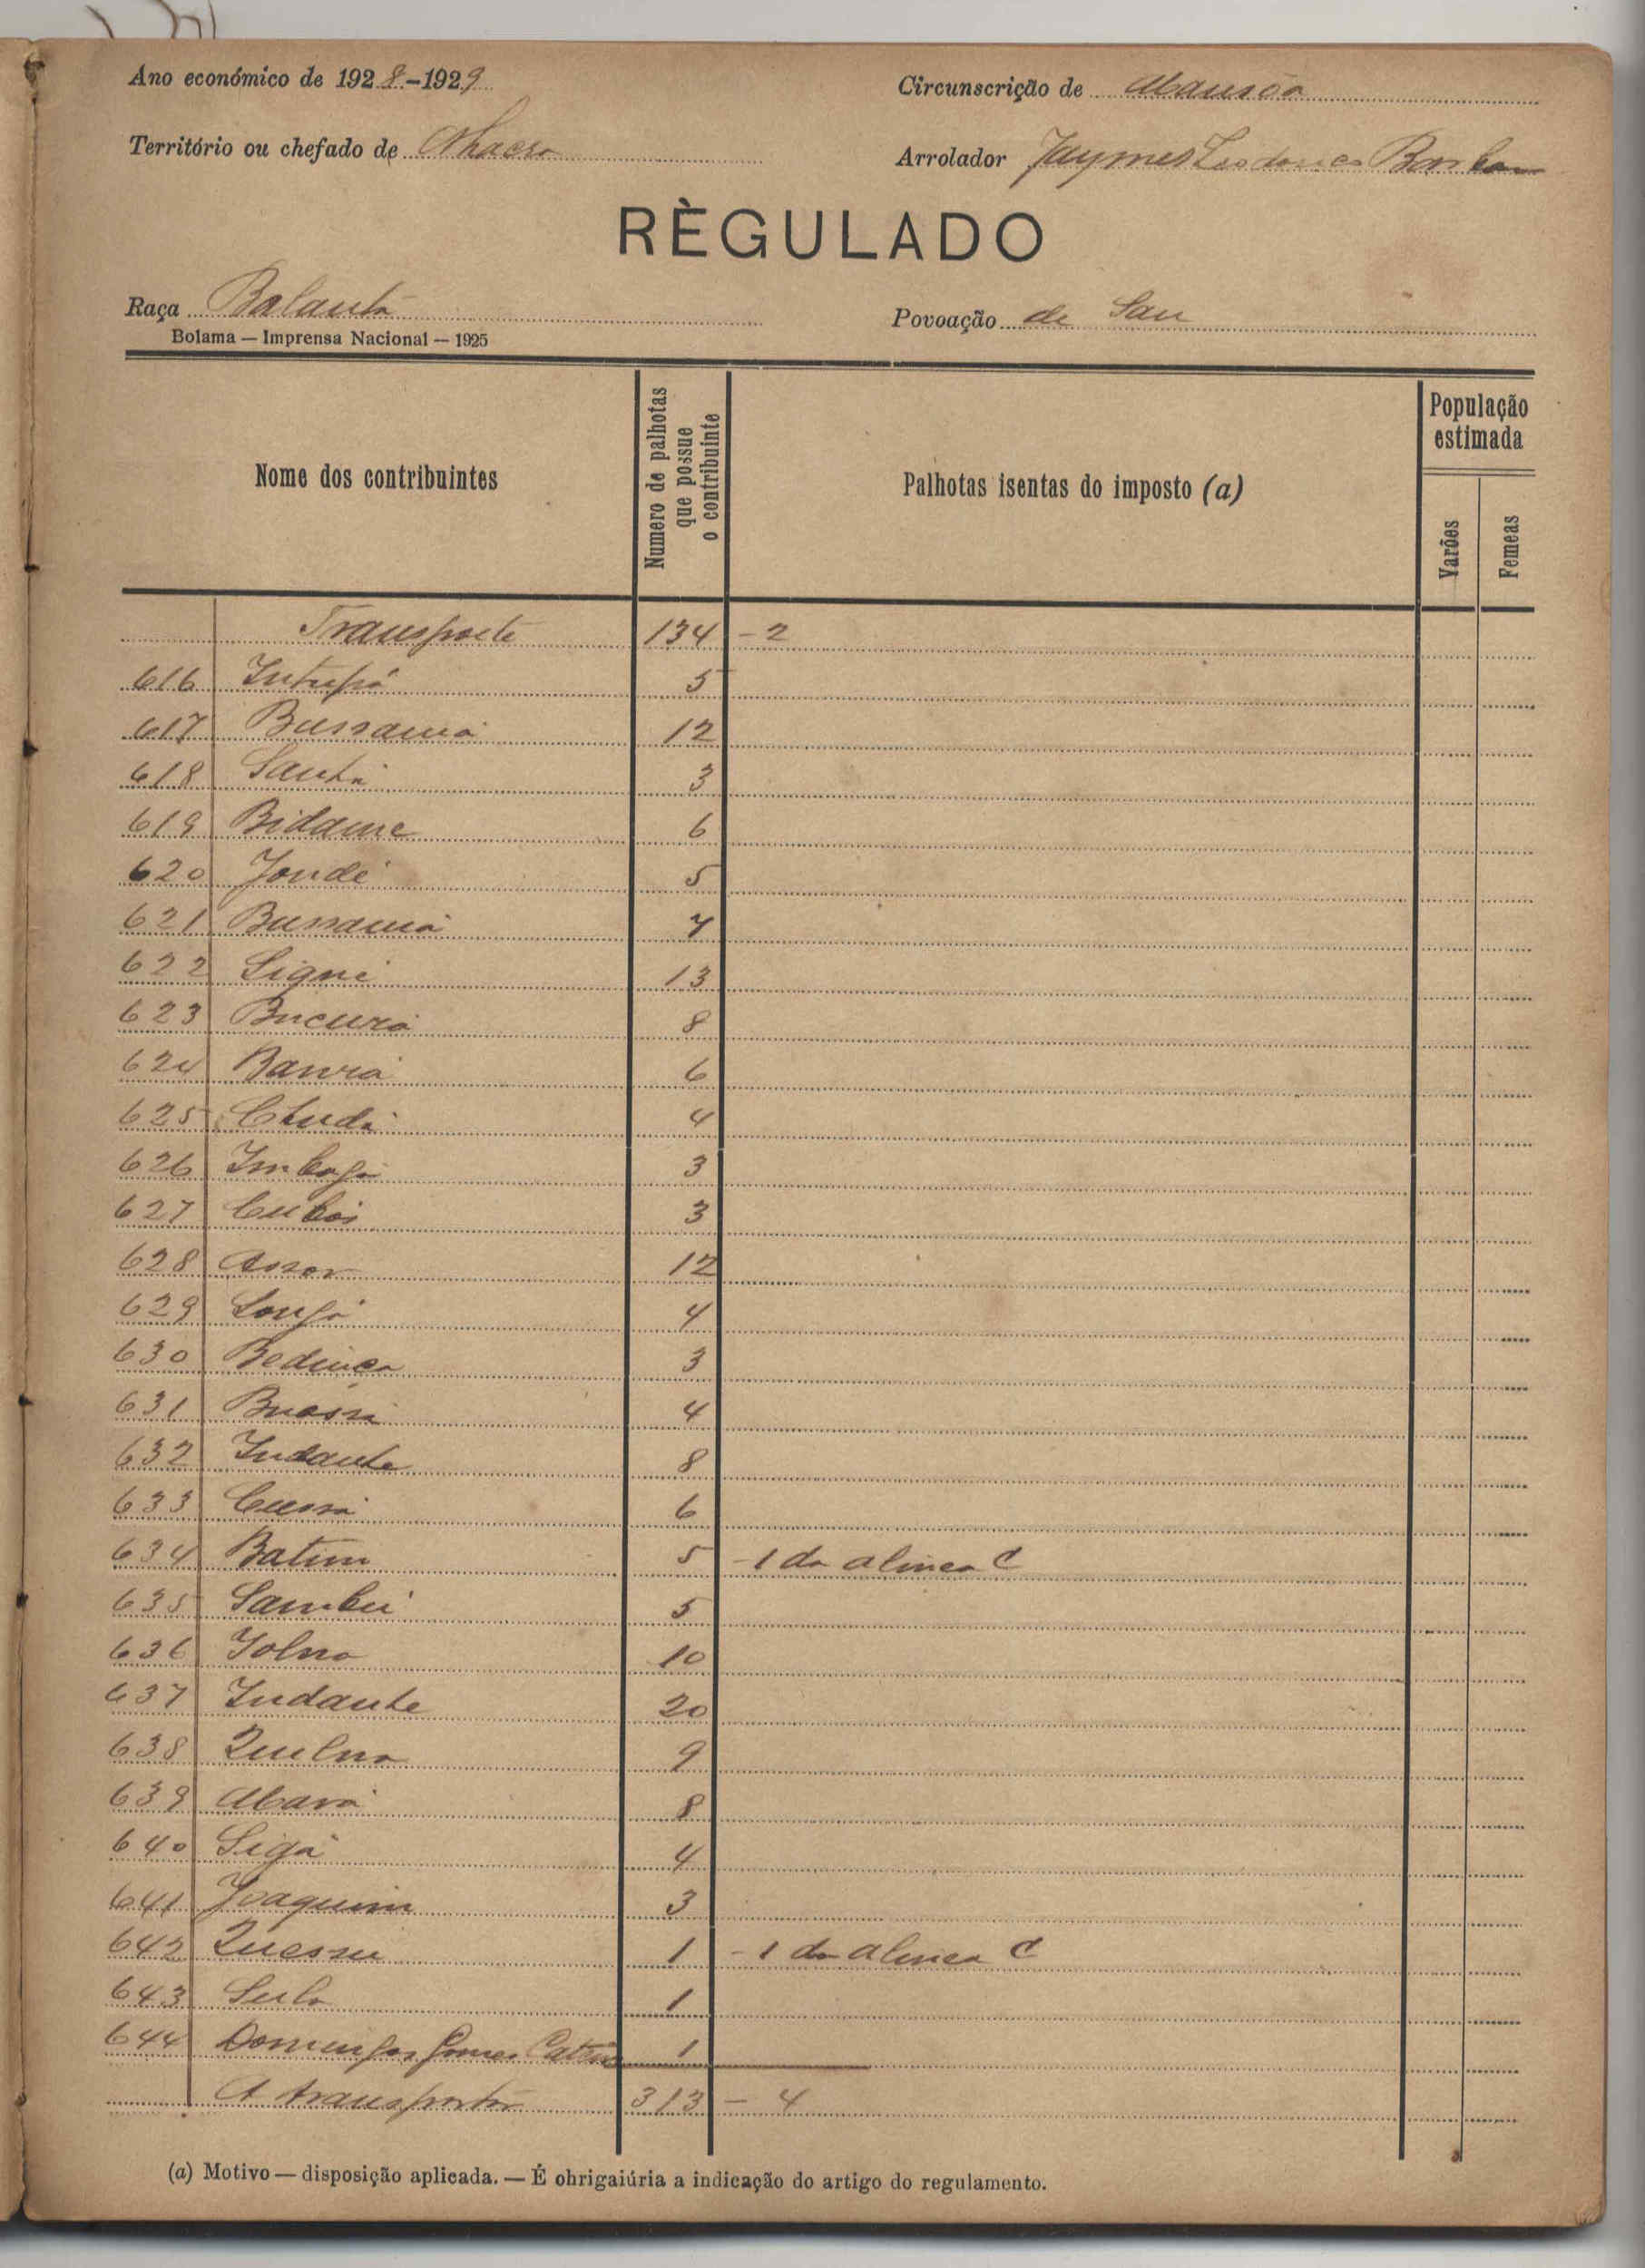 Ano económico de 1928-1929
Circunscrição de Mansôa
Território ou chefado de Nhacra
Arrolador Jaymes Barbosa
RÈGULADO
Raça Balanta
Povoação de San
Bolama — Imprensa Nacional — 1925
Nome dos contribuintes
Numero de palhotas que possue o contribuinte
Palhotas isentas do imposto (a)
População estimada
Varões
Femeas
Transporte 134 - 2
616 Intupá 5
617 Bussamá 12
618 Santi 3
619 Bidame 6
620 Jondé 5
621 Bussamá 7
622 Signé 13
623 Bucurá 8
624 Banrá 6
625 4
626 3
627 3
628 Assor 12
629 4
630 Bedinca 3
631 Buassi 4
632 Indante 8
633 Cussá 6
634 Batim 5 - 1 da alinea C
635 Sambú 5
636 10
637 Indante 20
638 9
639 8
640 Sigá 4
641 Joaquim 3
642 Quessu 1 - 1 da alinea C
643 1
644 Domingos Gomes 1
A transportar 313 - 4
(a) Motivo — disposição aplicada. — É ohrigaiúria a indicação do artigo do regulamento.